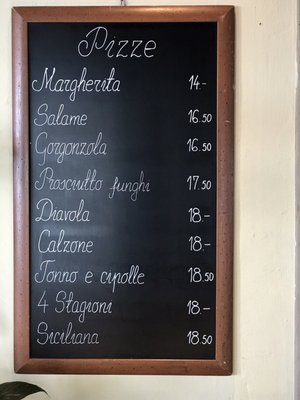 Pizze
Margherita 14.-
Salame 16.50
Gorgonzola 16.50
Prosciutto funghi 17.50
Diavola 18.-
Calzone 18.-
Tonno e cipolle 18.50
4 Stagioni 18.-
Siciliana 18.50